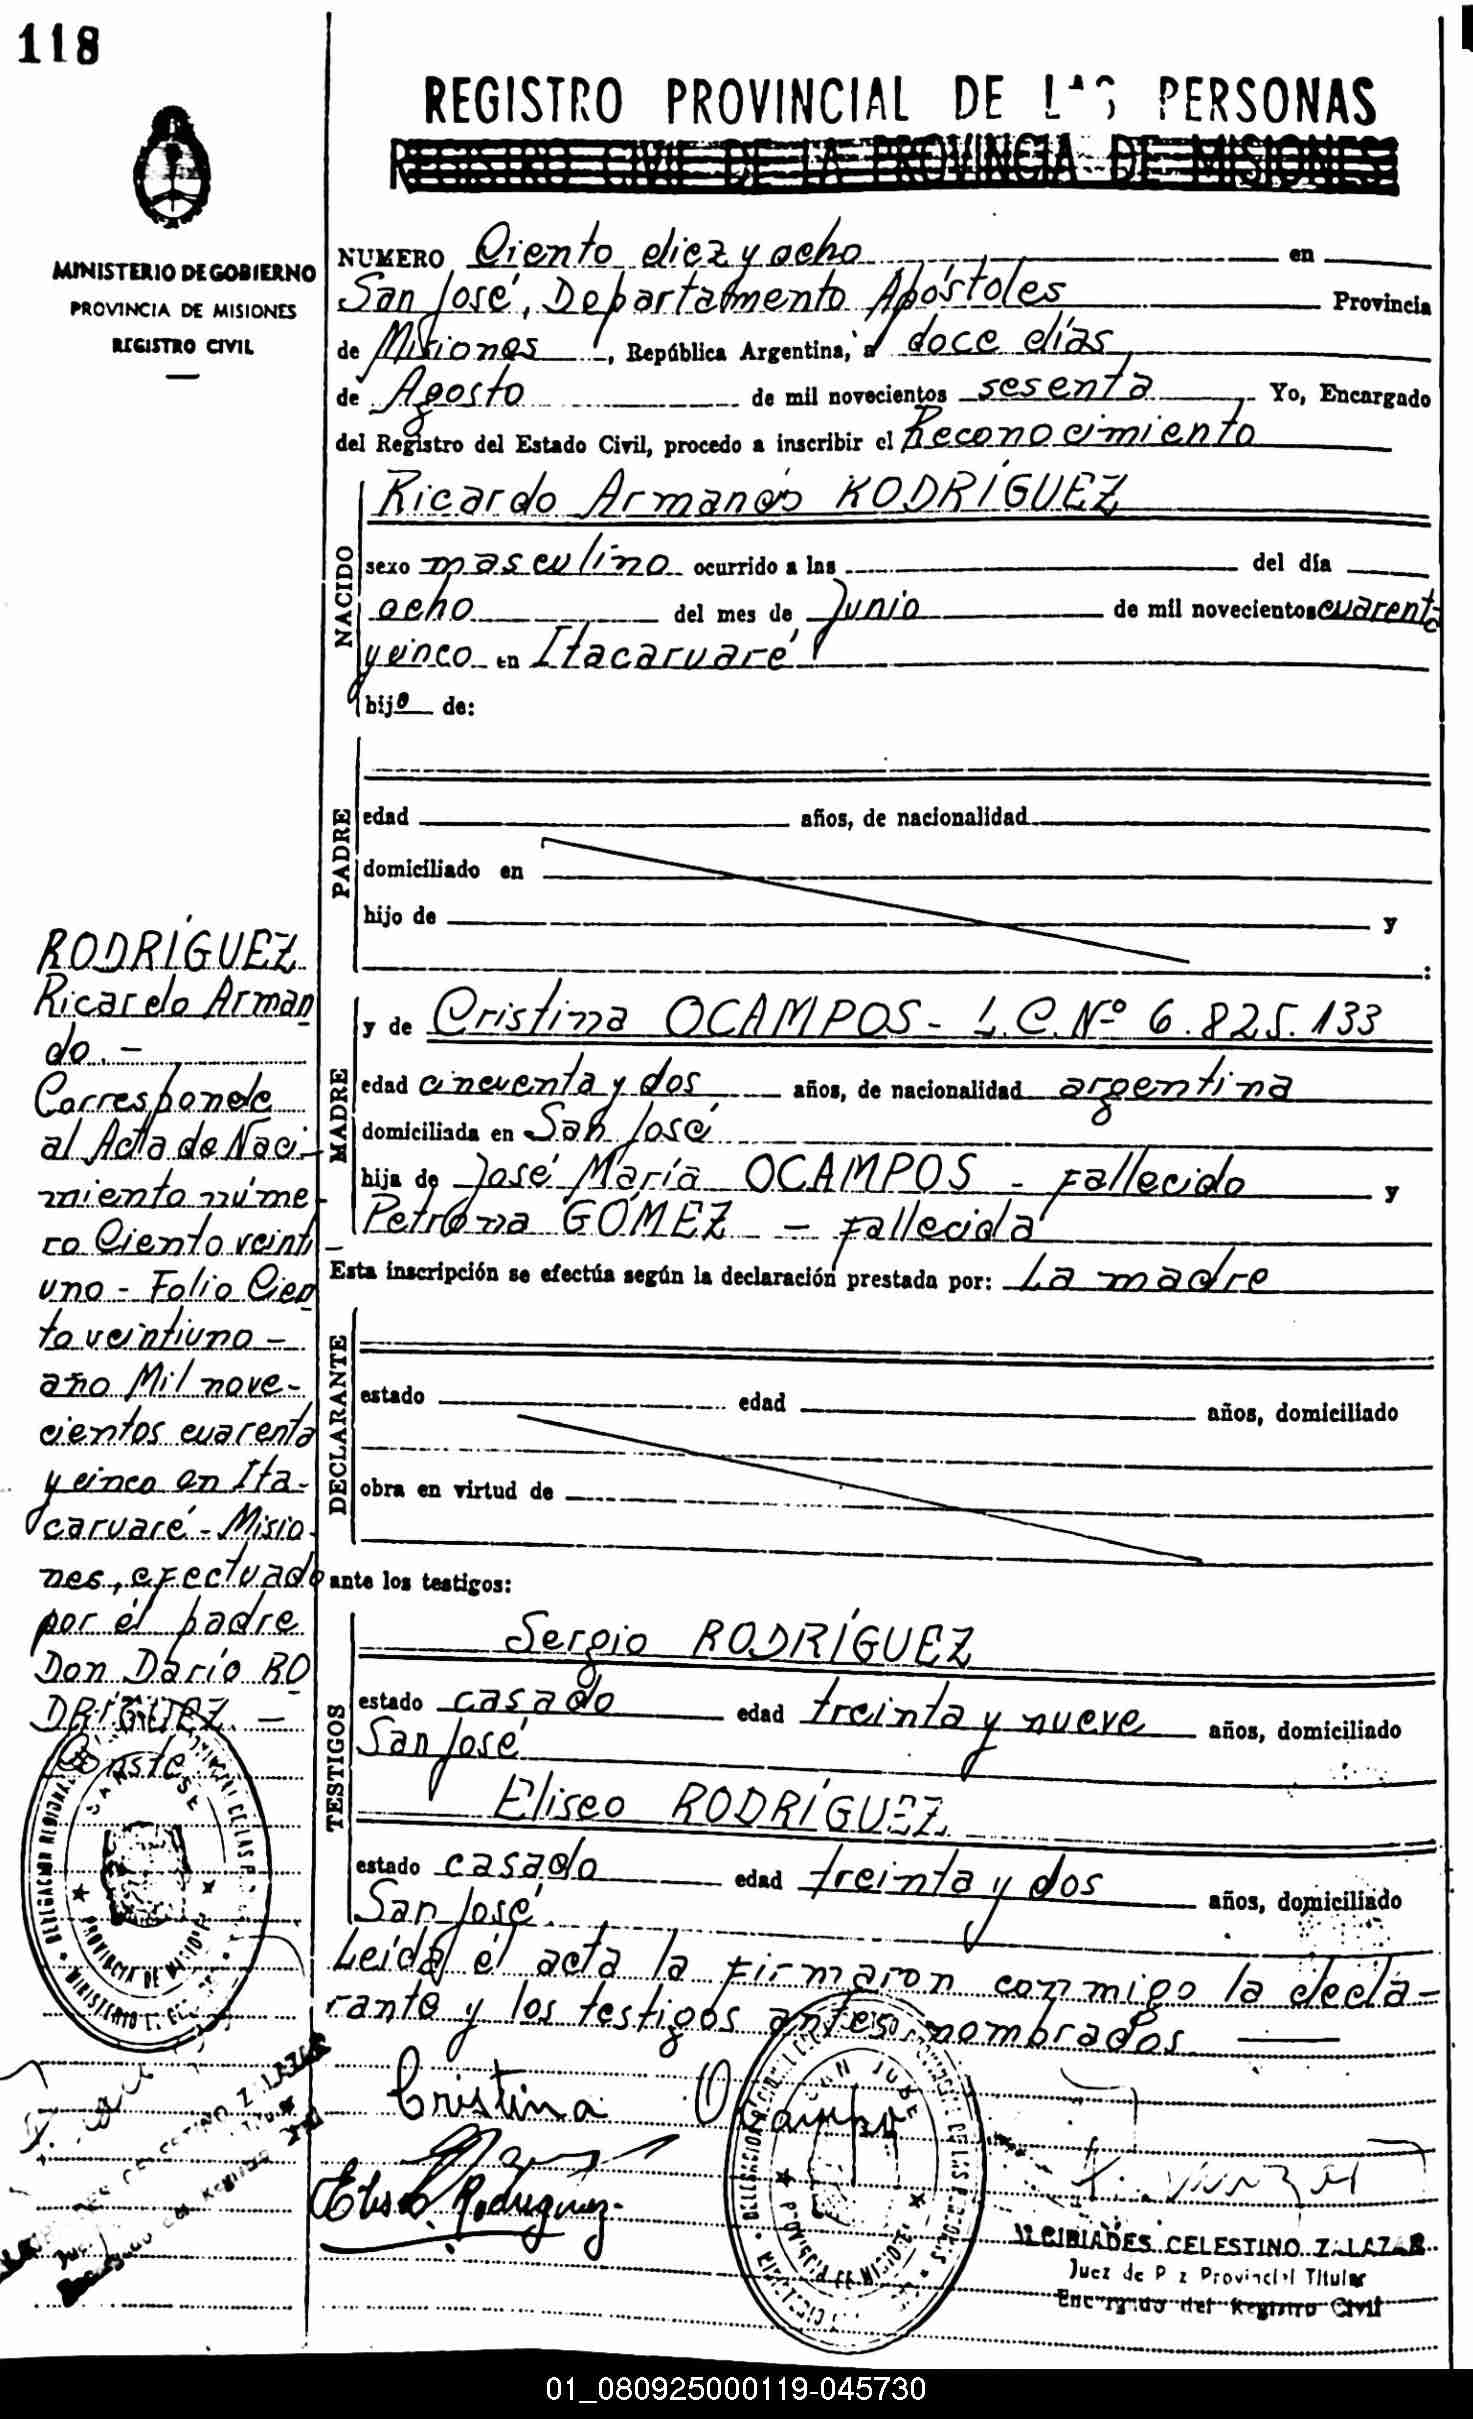 118
REGISTRO PROVINCIAL DE LAS PERSONAS
REGISTRO CIVIL DE LA PROVINCIA DE MISIONES
MINISTERIO DE GOBIERNO
PROVINCIA DE MISIONES
REGISTRO CIVIL
NUMERO Ciento diez y ocho en
San José, Departamento Apóstoles Provincia
de Misiones, República Argentina, a doce días
de Agosto de mil novecientos sesenta Yo, Encargado
del Registro del Estado Civil, procedo a inscribir el Reconocimiento
NACIDO
Ricardo Armando RODRÍGUEZ
sexo masculino ocurrido a las del día
ocho del mes de Junio de mil novecientos cuarenta
y cinco en Itacaruaré
hijo de:
PADRE
edad años, de nacionalidad
domiciliado en
hijo de y
:
MADRE
y de Cristina OCAMPOS - L.C. Nº 6.825.133
edad cincuenta y dos años, de nacionalidad argentina
domiciliada en San José
hija de José María OCAMPOS - fallecido y
Petrona GÓMEZ - fallecida
Esta inscripción se efectúa según la declaración prestada por: La madre
DECLARANTE
estado edad años, domiciliado
obra en virtud de
ante los testigos:
TESTIGOS
Sergio RODRÍGUEZ
estado casado edad treinta y nueve años, domiciliado
San José
Eliseo RODRÍGUEZ
estado casado edad treinta y dos años, domiciliado
San José.
Leída el acta la firmaron conmigo la decla-
rante y los testigos antes nombrados
Cristina Ocampo
Eliseo Rodriguez
ALCIBIADES CELESTINO ZALAZAR
Juez de Paz Provincial Titular
Encargado del Registro Civil
RODRÍGUEZ
Ricardo Arman
do.-
Corresponde
al Acta de Naci-
miento núme-
ro Ciento veinti-
uno - Folio Cien
to veintiuno -
año Mil nove-
cientos cuarenta
y cinco en Ita-
caruaré - Misio-
nes, efectuado
por el padre
Don Darío RO
DRÍGUEZ. -
Conste
SAN JOSE
PROVINCIA DE MISIONES
DELEGACION REGIONAL
CELESTINO ZALAZAR
SAN JOSE
01_080925000119-045730